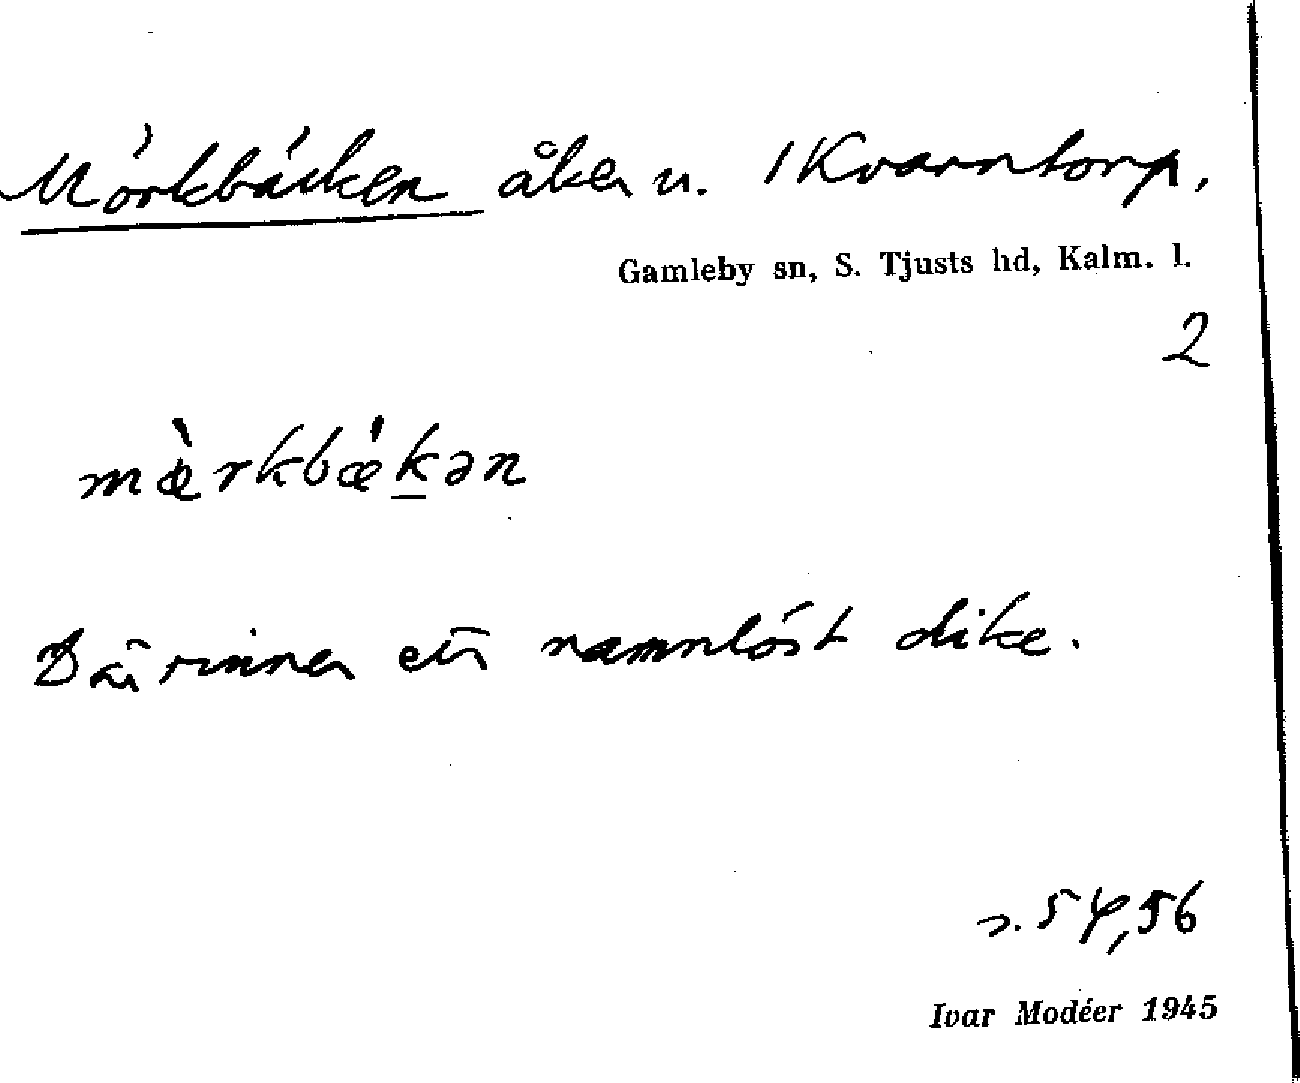 Mörkbäcken åker u. 1 Kvarntorp,
Gamleby sn, S. Tjusts hd, Kalm. l.
2
mœ̀rkbǽk̲ən
Där rinner ett namnlöst dike.
s. 54, 56
Ivar Modéer 1945